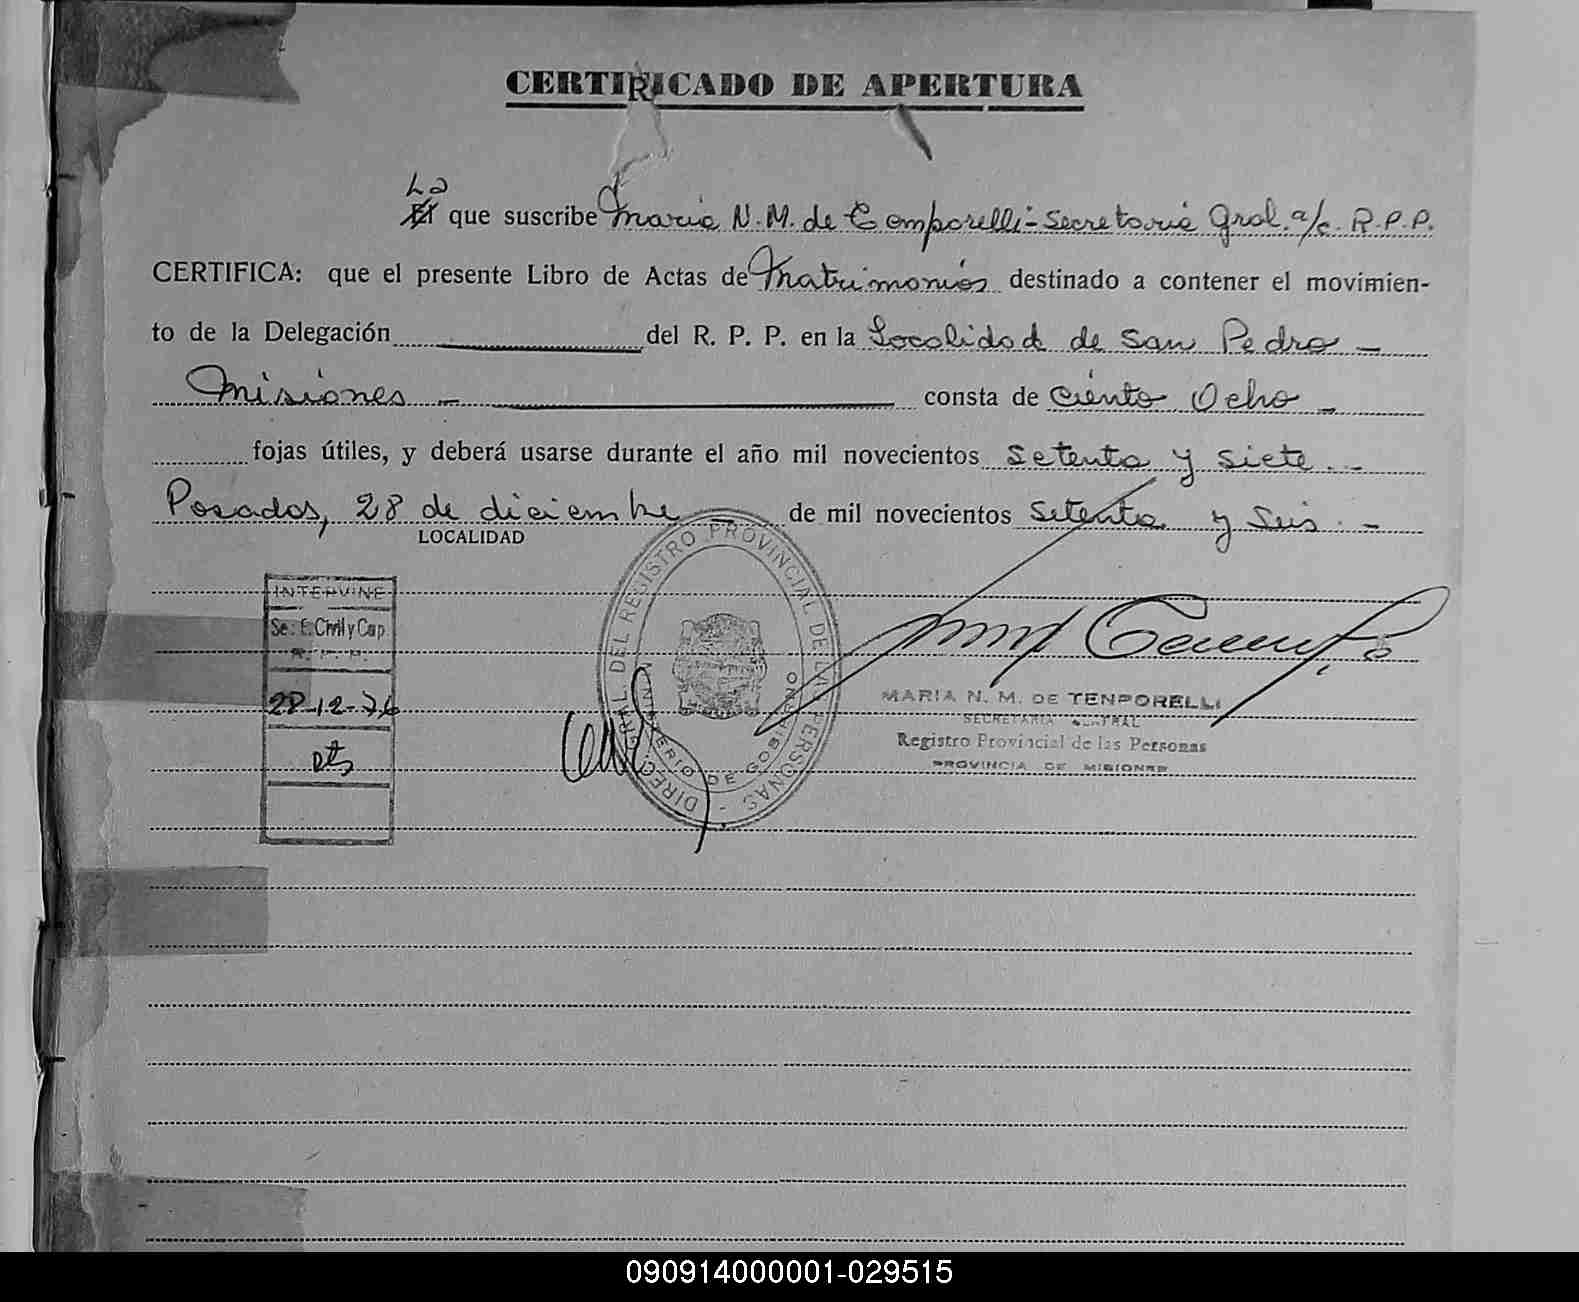 CERTIFICADO DE APERTURA
La
El que suscribe Maria N. M. de Temporelli - Secretaria Gral. a/c. R.P.P.
CERTIFICA: que el presente Libro de Actas de Matrimonios destinado a contener el movimien-
to de la Delegación del R. P. P. en la Localidad de San Pedro -
Misiones - consta de Ciento Ocho -
fojas útiles, y deberá usarse durante el año mil novecientos Setenta y Siete. -
Posadas, 28 de diciembre de mil novecientos Setenta y Seis. -
LOCALIDAD
INTERVINE
Sec. E. Civil y Cap.
R. P. P.
28-12-76
DIREC. GRAL. DEL REGISTRO PROVINCIAL DE LAS PERSONAS -
MINISTERIO DE GOBIERNO
MARIA N. M. DE TENPORELLI
SECRETARIA GENERAL
Registro Provincial de las Personas
PROVINCIA DE MISIONES
090914000001-029515